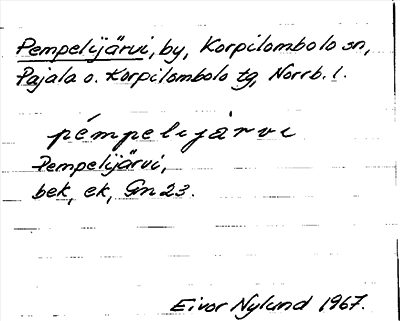 Pempelijärvi, by, Korpilombolo sn,
Pajala o. Korpilombolo tg, Norrb. l.
pémpelijärvi
Pempelijärvi,
bek, ek, Gn 23.
Eivor Nylund 1967.